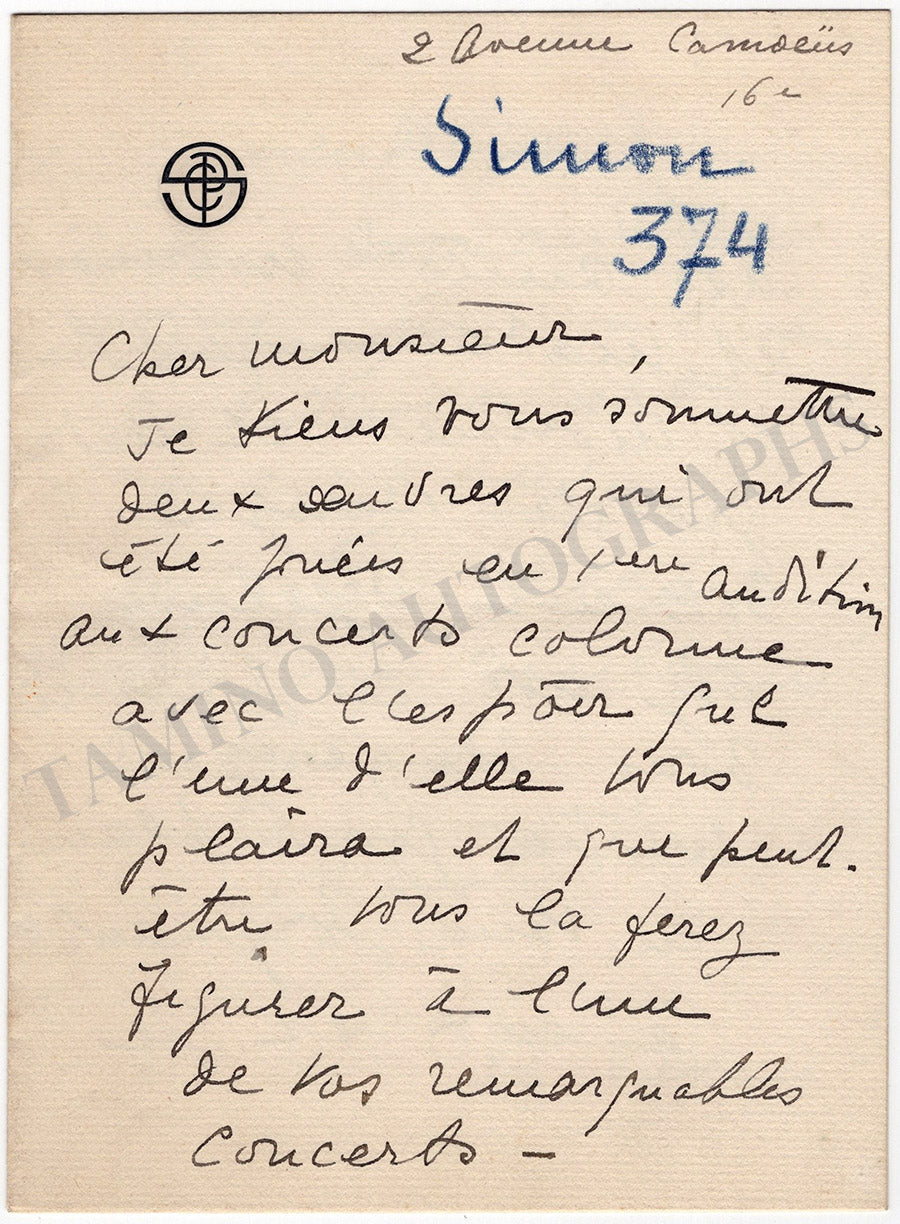 2 Avenue Camoëns
16e
Simon
374
Cher monsieur,
Je viens vous soumettre
deux œuvres qui ont
été jouées en 1ere audition
aux concerts colonne
avec l'espoir que
l'une d'elle vous
plaira et que peut-
être vous la ferez
figurer à l'une
de vos remarquables
concerts —
TAMINO AUTOGRAPHS